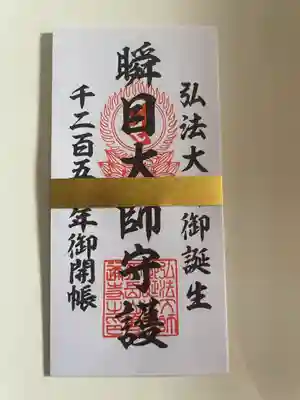 弘法大 御誕生
瞬目大師守護
千二百五 年御開帳